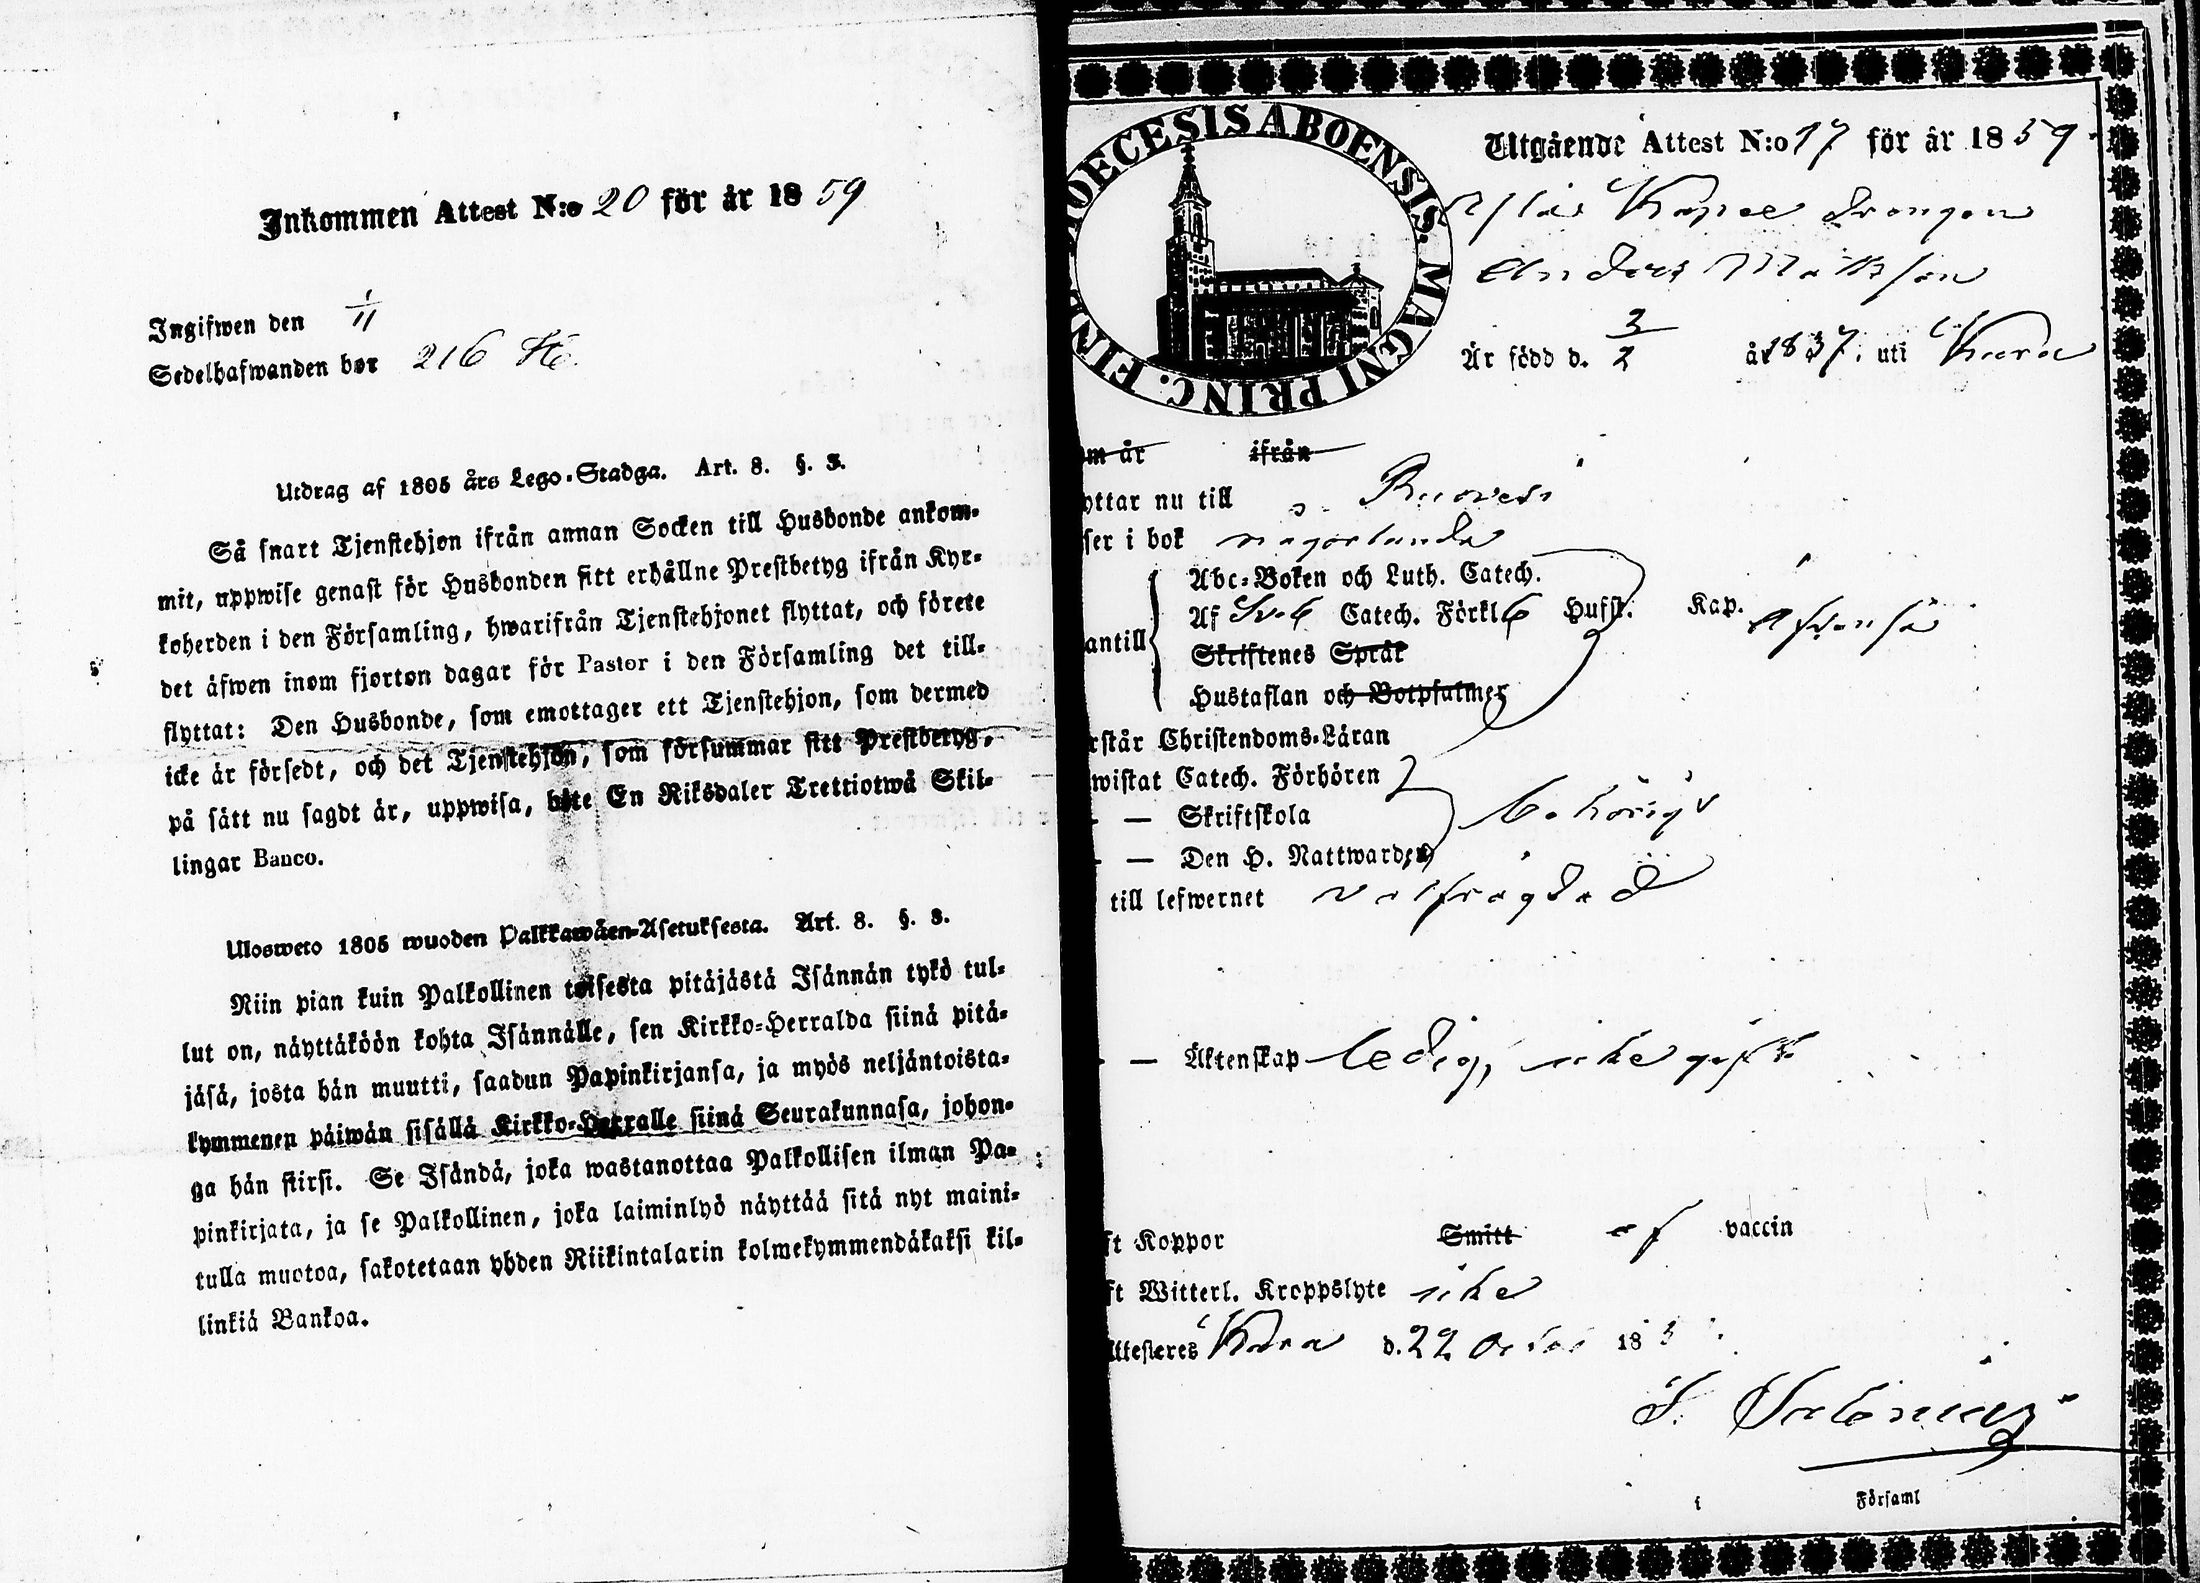 Inkommen Attest N:o 20 för år 18 59
Ingifwen den 1/11
Sedelhafwanden bor 216
Utdrag af 1805 års Lego-Stadga. Art. 8. §. 3.
Så snart Tjenstehjon ifrån annan Socken till Husbonde ankom-
mit, uppwise genast för Husbonden sitt erhållne Prestbetyg ifrån Kyr-
koherden i den Församling, hwarifrån Tjenstehjonet flyttat, och förete
det äfwen inom fjorton dagar för Pastor i den Församling det till-
flyttat: Den Husbonde, som emottager ett Tjenstehjon, som dermed
icke är försedt, och det Tjenstehjon, som försummar sitt Prestbetyg,
på sätt nu sagdt är, uppwisa, böte En Riksdaler Trettiotwå Skil-
lingar Banco.
Ulosweto 1805 wuoden Palkkawäen-Asetuksesta. Art. 8. §. 3.
Niin pian kuin Palkollinen toisesta pitäjästä Isännän tykö tul-
lut on, näyttäköön kohta Isännälle, sen Kirkko-Herralda siinä pitä-
jäsä, josta hän muutti, saadun Papinkirjansa, ja myös neljäntoista-
kymmenen päiwän sisällä Kirkko-Herralle siinä Seurakunnasa, johon-
ga hän siirsi. Se Isändä, joka wastanottaa Palkollisen ilman Pa-
pinkirjata, ja se Palkollinen, joka laiminlyö näyttää sitä nyt maini-
tulla muotoa, sakotetaan yhden Riikintalarin kolmekymmendäkaksi kil-
linkiä Bankoa.
DIOECESIS ABOENSIS. MAGNI PRINC. FINL
Utgående Attest N:o 17 för år 18 59.
Kapee drengen
Anders Mattsson
Är född d. 3/2 år 1837. uti Kuru
om år ifrån
yttar nu till Ruovesi
ser i bok någorlunda
Abc-Boken och Luth. Catech.
Af Sveb Catech. Förkl Husf. Kap.
antill
Skriftenes Språk
Hustaflan och Botpsalmer
rstår Christendoms-Läran
wistat Catech. Förhören
- — Skriftskola behörigt
- — Den H. Nattwarden
till lefwernet välfrägdad
- — Äktenskap ledig, icke gift
ft Koppor Smitt af vaccin
ft Witterl. Kroppslyte icke
ttesteres Kuru d. 22 October 18 5
i Församl